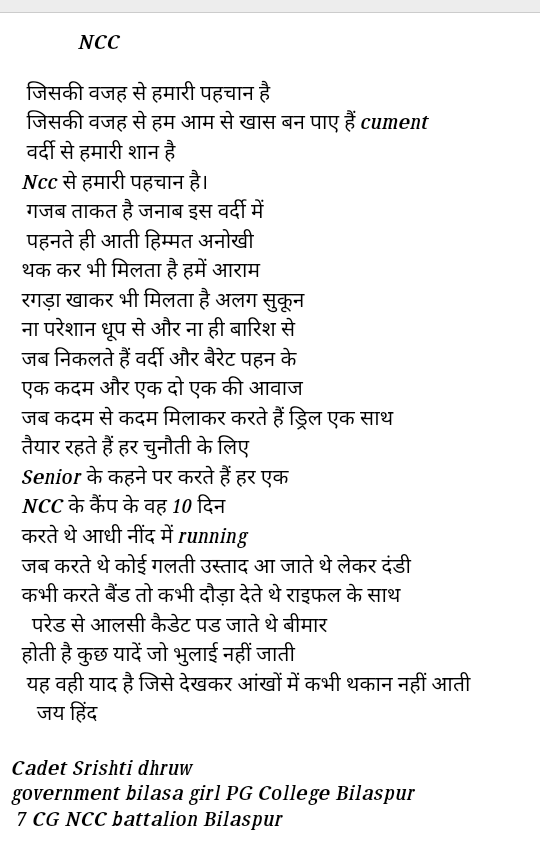 NCC
जिसकी वजह से हमारी पहचान है
जिसकी वजह से हम आम से खास बन पाए हैं cument
वर्दी से हमारी शान है
Ncc से हमारी पहचान है।
गजब ताकत है जनाब इस वर्दी में
पहनते ही आती हिम्मत अनोखी
थक कर भी मिलता है हमें आराम
रगड़ा खाकर भी मिलता है अलग सुकून
ना परेशान धूप से और ना ही बारिश से
जब निकलते हैं वर्दी और बैरेट पहन के
एक कदम और एक दो एक की आवाज
जब कदम से कदम मिलाकर करते हैं ड्रिल एक साथ
तैयार रहते हैं हर चुनौती के लिए
Senior के कहने पर करते हैं हर एक
NCC के कैंप के वह 10 दिन
करते थे आधी नींद में running
जब करते थे कोई गलती उस्ताद आ जाते थे लेकर दंडी
कभी करते बैंड तो कभी दौड़ा देते थे राइफल के साथ
परेड से आलसी कैडेट पड जाते थे बीमार
होती है कुछ यादें जो भुलाई नहीं जाती
यह वही याद है जिसे देखकर आंखों में कभी थकान नहीं आती
जय हिंद
Cadet Srishti dhruw
government bilasa girl PG College Bilaspur
7 CG NCC battalion Bilaspur